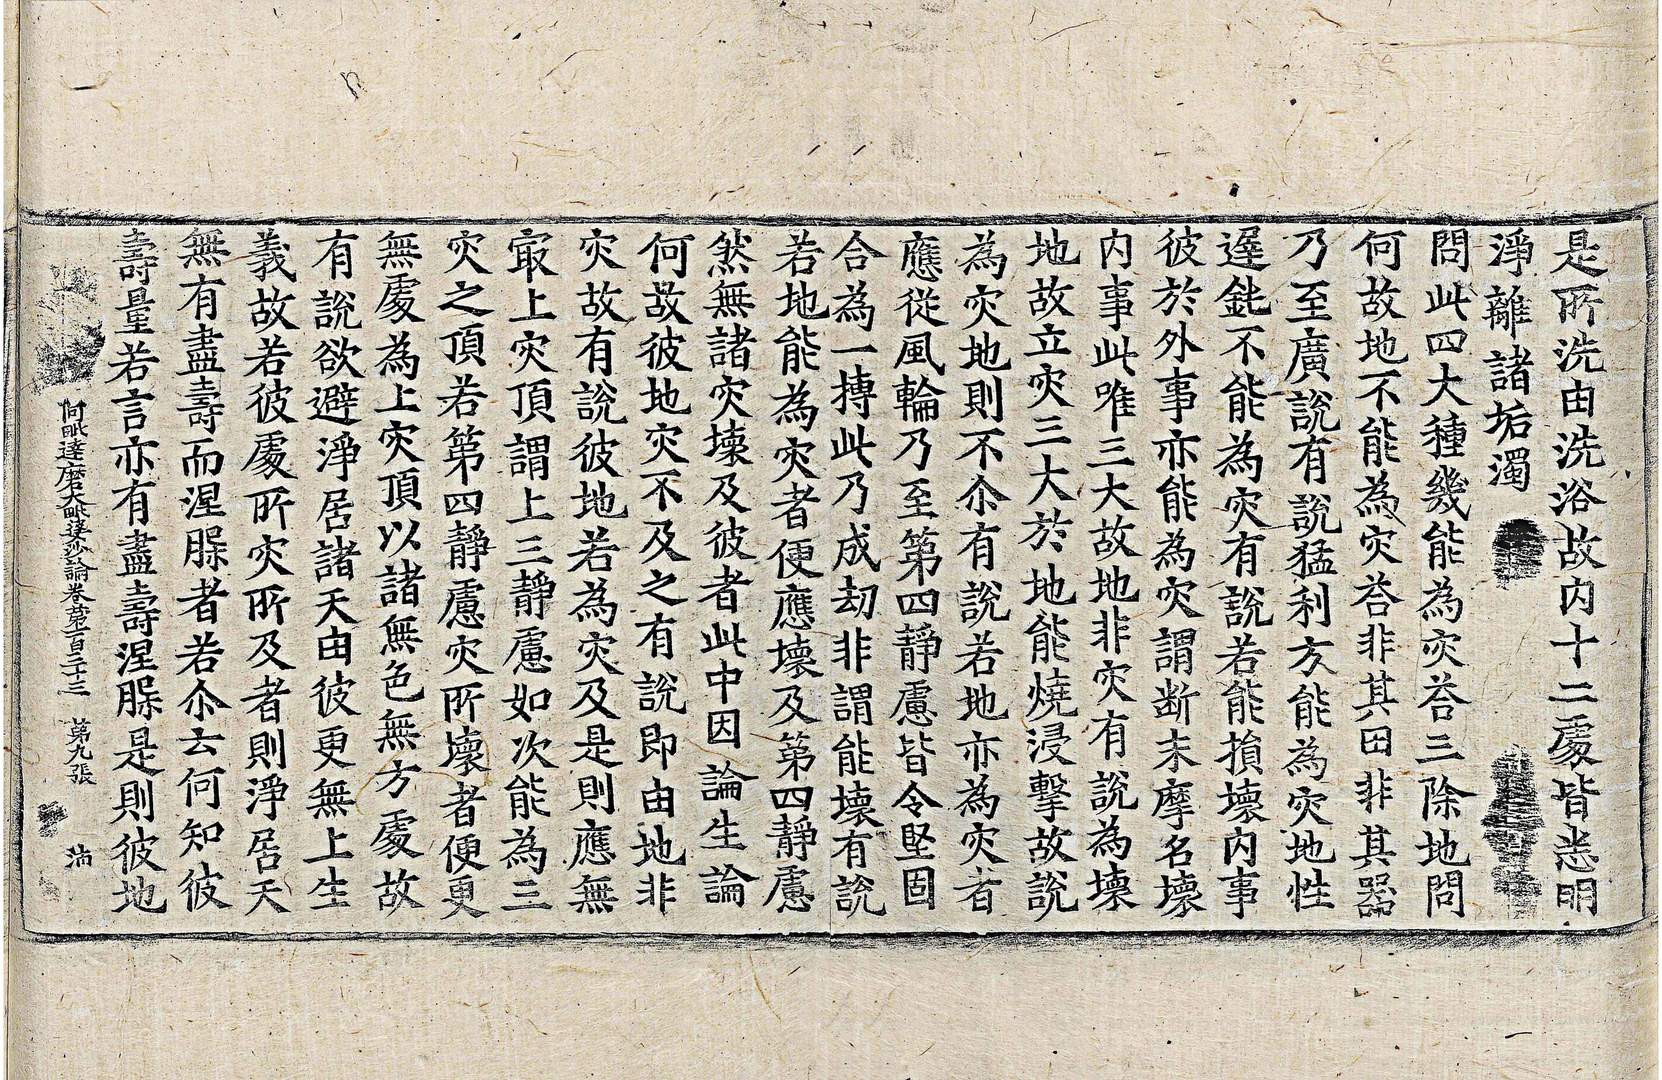 是所洗由洗浴故内十二處皆悉明
淨離諸垢濁
問此四大種幾能為灾荅三除地問
何故地不能為灾荅非其田非其器
乃至廣說有說猛利方能為灾地性
遲鈍不能為灾有說若能損壞内事
彼於外事亦能為灾謂断末摩名壞
内事此唯三大故地非灾有說為壞
地故立灾三大於地能燒浸擊故說
為灾地則不尒有說若地亦為灾者
應從風輪乃至第四靜慮皆令堅固
合為一摶此乃成劫非謂能壞有說
若地能為灾者便應壞及第四靜慮
然無諸灾壞及彼者此中因論生論
何故彼地灾不及之有說即由地非
灾故有說彼地若為灾及是則應無
㝡上灾頂謂上三靜慮如次能為三
灾之頂若第四靜慮灾所壞者便更
無處為上灾頂以諸無色無方處故
有說欲避淨居諸天由彼更無上生
義故若彼處所灾所及者則淨居天
無有盡壽而涅槃者若尒云何知彼
壽量若言亦有盡壽涅槃是則彼地
阿毗達磨大毗婆沙論卷第一百三十三 第九張 滿